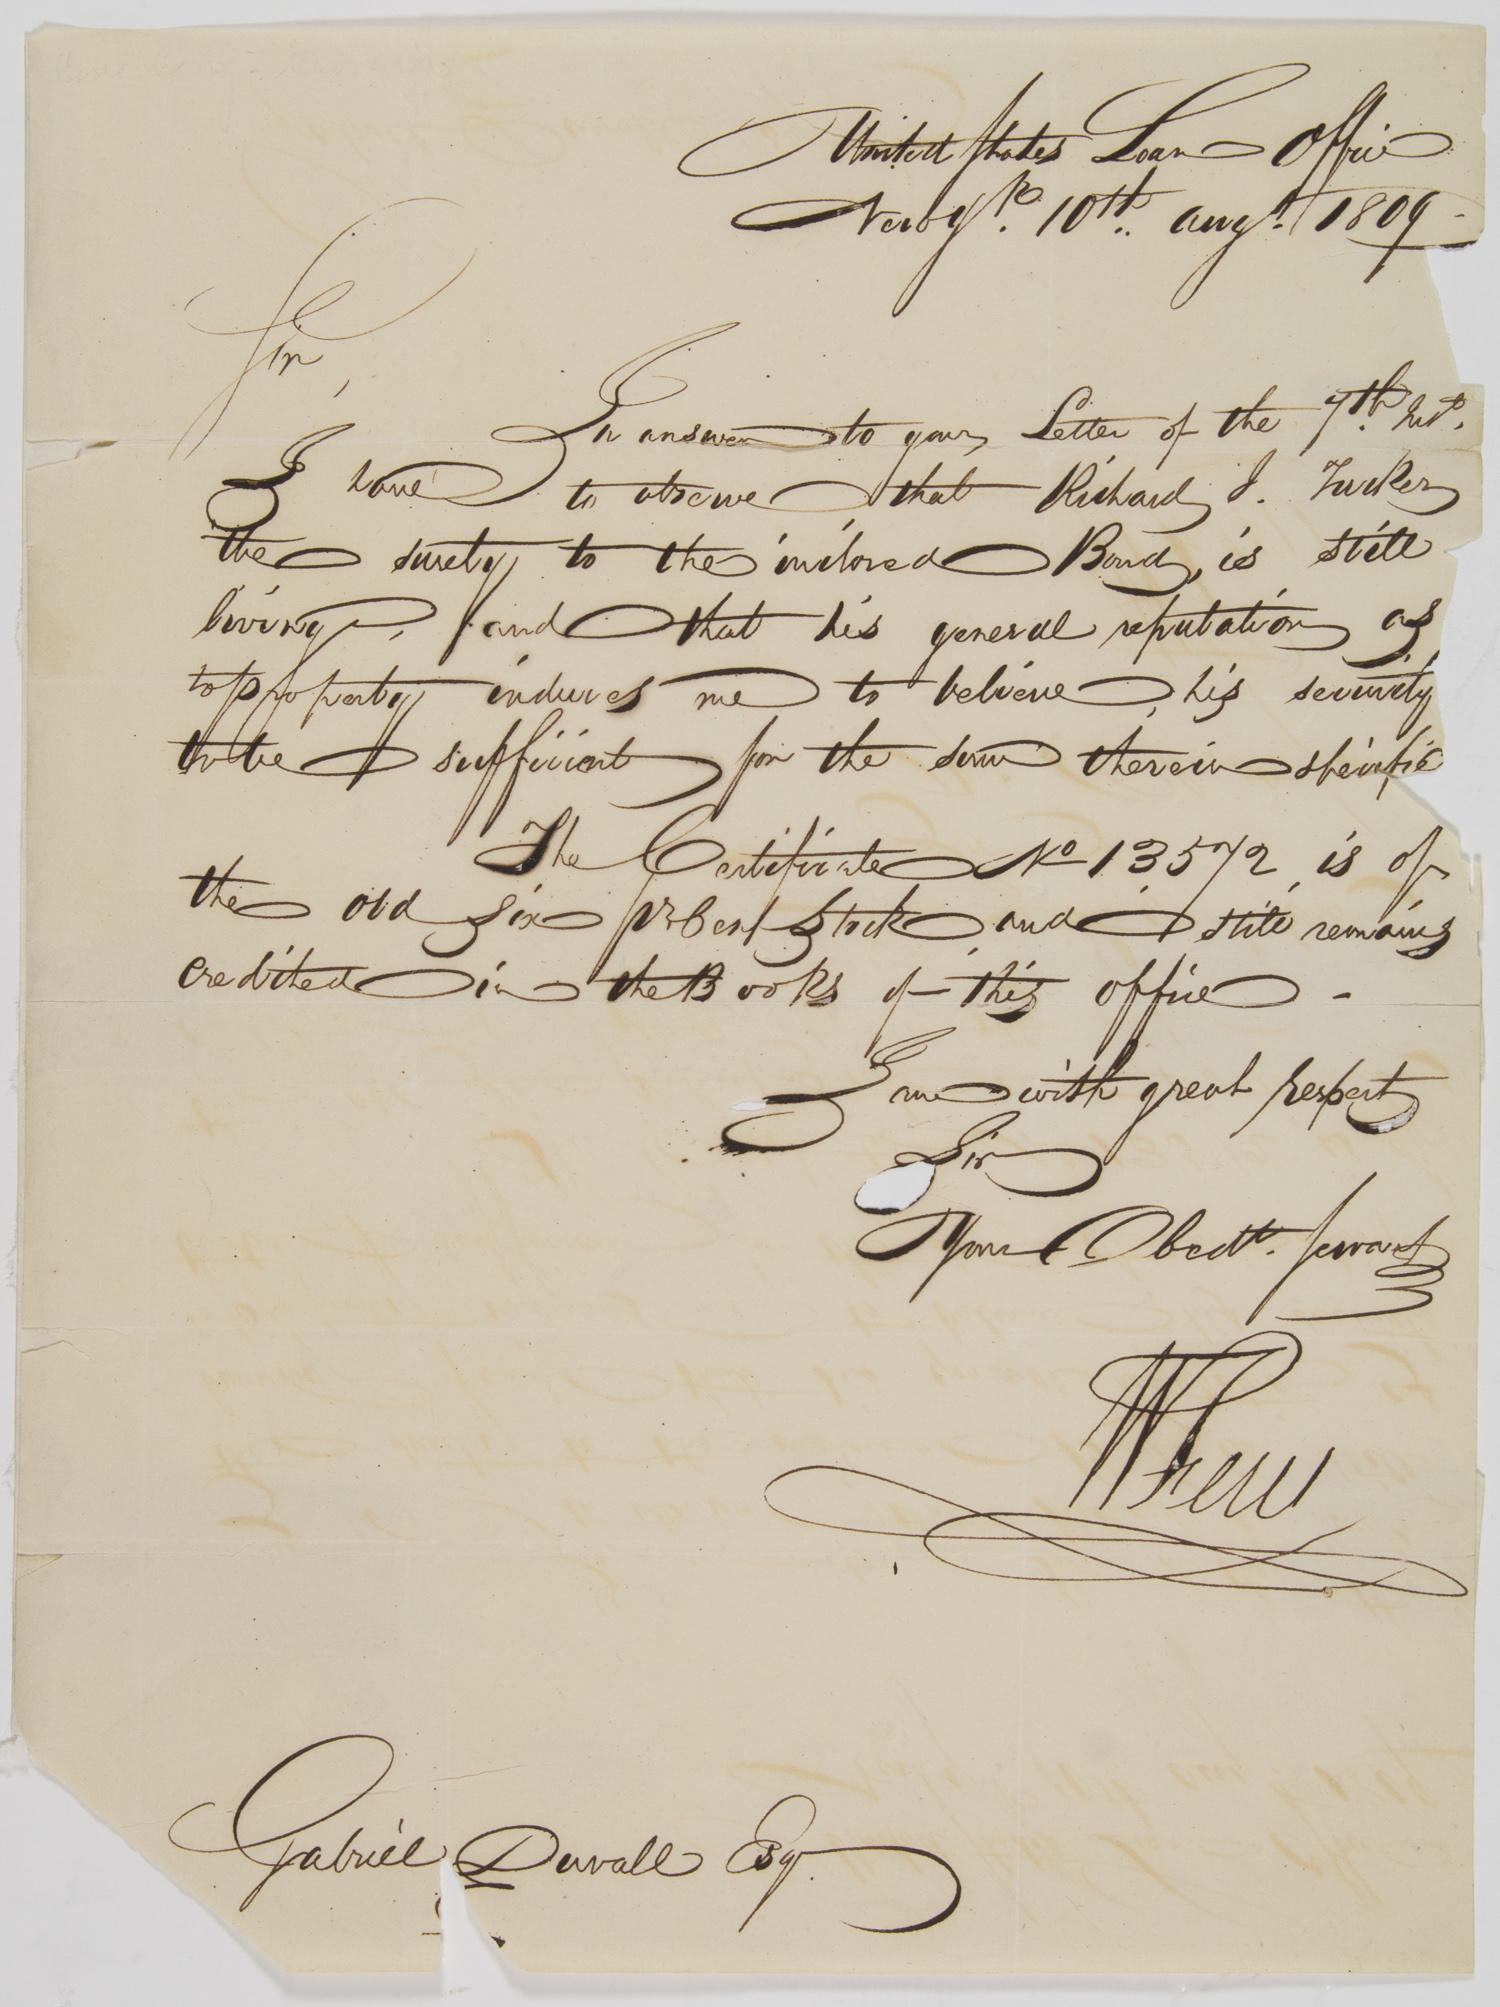 United States Loan Office
New Yk. 10th. augt. 1809 -
Sir,
In answer to your Letter of the 7th. Inst.
I have to observe that Richard J. Tucker
the surety to the inclosed Bond, is still
living, and that his general reputation as
to property induces me to believe, his security
to be sufficient for the sum therein specifie
The Certificate No 13572, is of
the old six pr Cent Stock, and still remains
credited in the Books of this office -
I am with great respect
Sir
Your Obedt. servant
Gabriel Duvall Esqr.